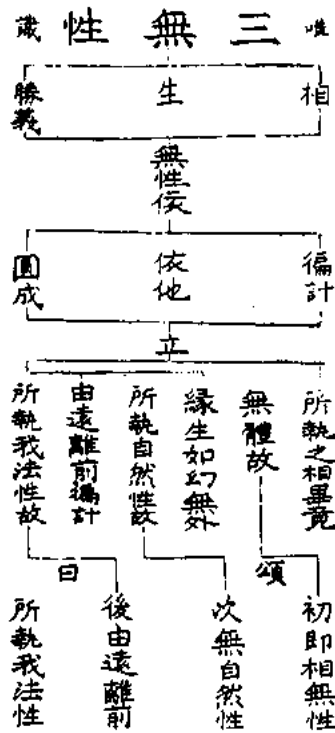 唯識
三無性
相
生
勝義
無性依
徧計
依他
圓成
立
所執之相畢竟
無體故
緣生如幻無外
所執自然性故
由遠離前徧計
所執我法性故
頌曰
初即相無性
次無自然性
後由遠離前
所執我法性